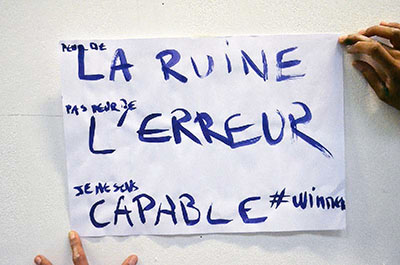 PEUR DE
LA RUINE
PAS PEUR DE
L'ERREUR
JE ME SENS
CAPABLE #WINNER